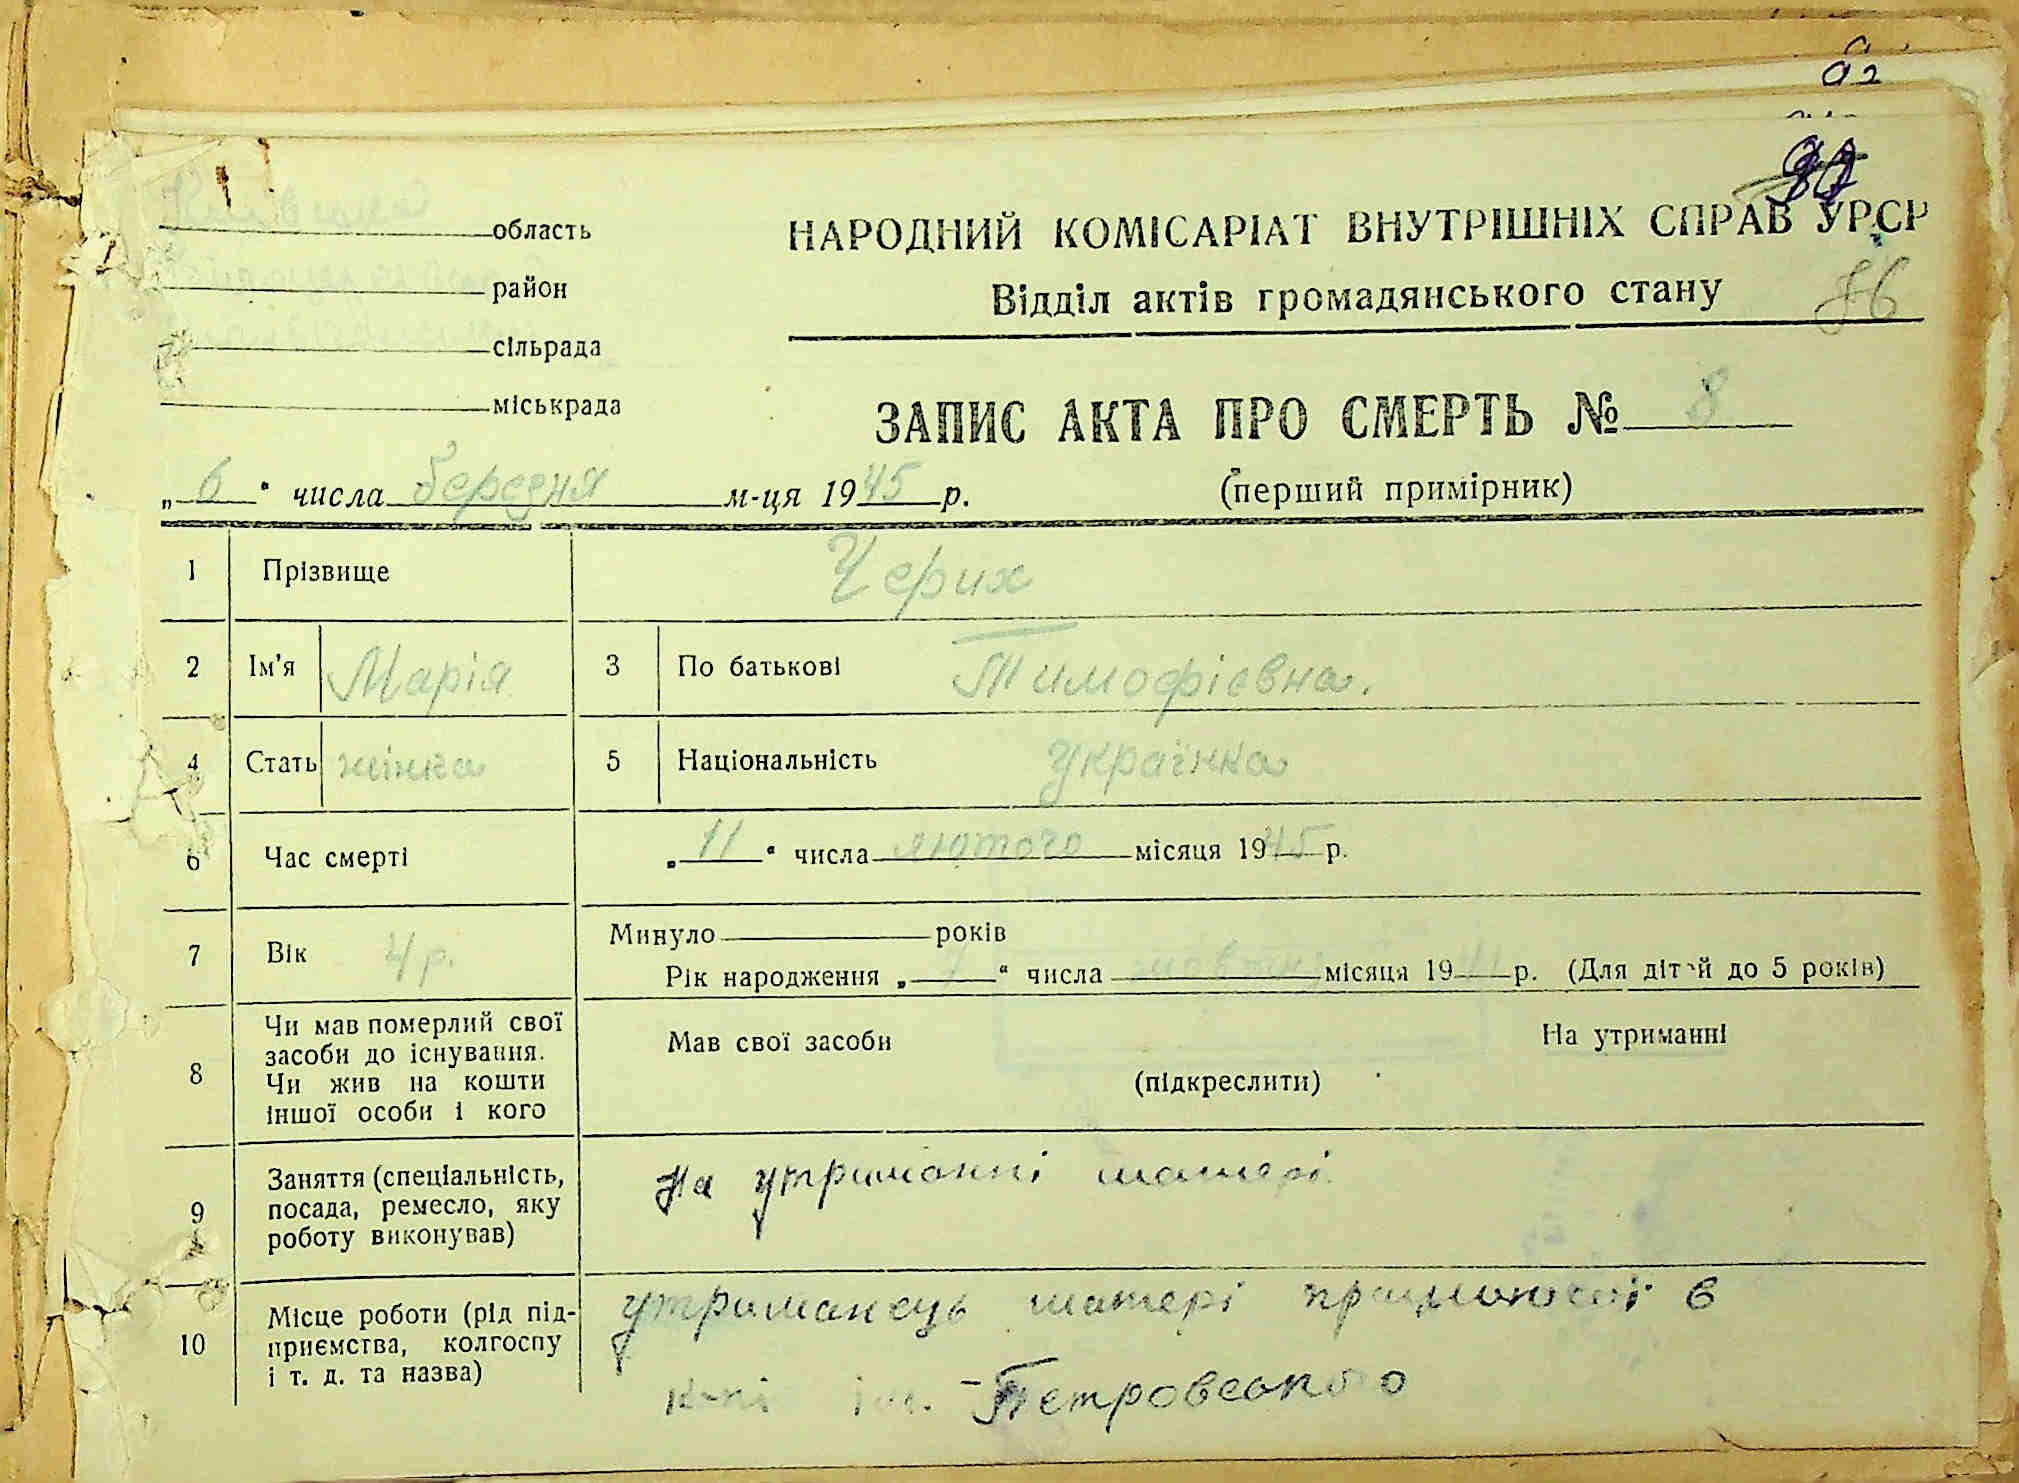 92
область
НАРОДНИЙ КОМІСАРІАТ ВНУТРІШНІХ СПРАВ УРСР
район
Відділ актів громадянського стану
86
сільрада
міськрада
ЗАПИС АКТА ПРО СМЕРТЬ № 8
„6“ числа березня м-ця 1945 р.
(перший примірник)
1 Прізвище Черих
2 Ім'я Марія 3 По батькові Тимофієвна.
4 Стать жінка 5 Національність Українка
6 Час смерті „11“ числа лютого місяця 1945 р.
7 Вік 4 р. Минуло року років
Рік народження „7“ числа жовтня місяця 1941 р. (Для дітей до 5 років)
8 Чи мав померлий свої засоби до існування. Чи жив на кошти іншої особи і кого
Мав свої засоби На утриманні
(підкреслити)
9 Заняття (спеціальність, посада, ремесло, яку роботу виконував)
На утриманні матері
10 Місце роботи (рід підприємства, колгоспу і т. д. та назва)
утриманець матері працюючої в
к-пі ім. Петровського